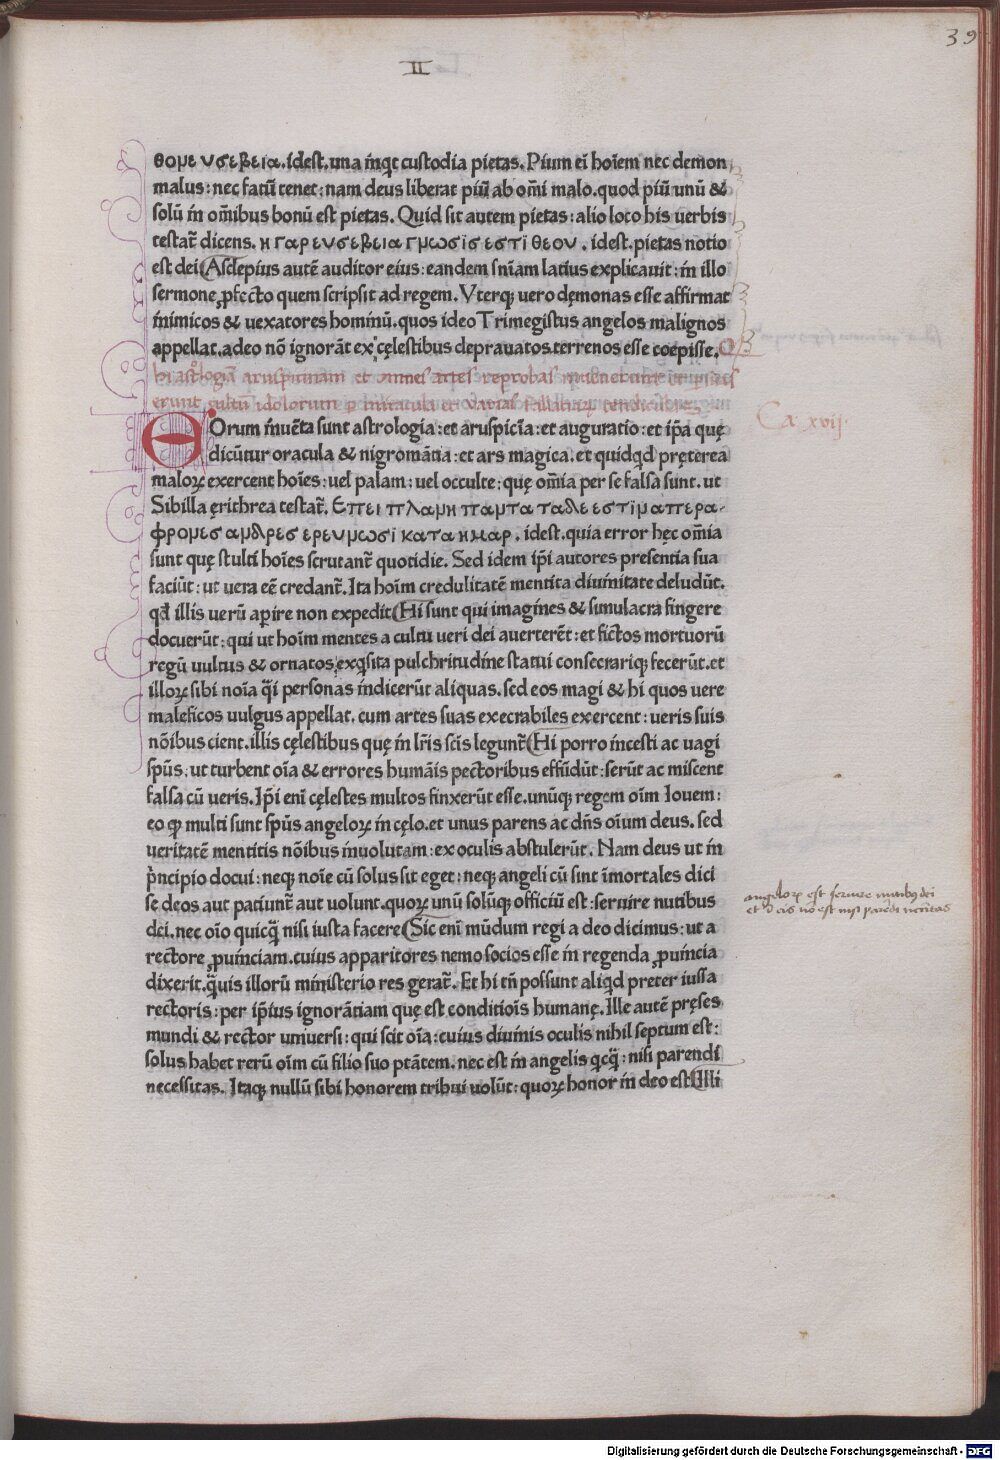 39
II
θομε υσεβεια. idest. una inqt custodia pietas. Pium ei hoiem nec demon
malus: nec fatū tenet: nam deus liberat piū ab omi malo. quod piū unū &
solū in omibus bonū est pietas. Quid sit autem pietas: alio loco his uerbis
testat̄ dicens. η γαρ ευσεβεια γμωσισ εστι θεου. idest. pietas notio
est dei Asclepius autē auditor eius: eandem sniam latius explicauit: in illo
sermone ꝓfecto quem scripsit ad regem. Vterqꝫ uero dęmonas esse affirmat
inimicos & uexatores hominū. quos ideo Trimegistus angelos malignos
appellat. adeo nō ignorāt ex cęlestibus deprauatos. terrenos esse coepisse. Q
hi astrologiā aruspicinam et omnes artes reprobas inuenerunt
erunt cultū idolorum p miracula et varias
Ca xvij
EOrum inuēta sunt astrologia: et aruspicīa: et auguratio: et ip̄a quę
dicūtur oracula & nigromātia: et ars magica. et quidqd pręterea
maloꝝ exercent hoies: uel palam: uel occulte: quę om̄ia per se falsa sunt. ut
Sibilla ęrithrea testat̄. Επει πλαμη παμτα ταδε εστιμ απερα-
φρομεσ αμδρεσ ερευμωσι κατα ημαρ. idest. quia error hęc om̄ia
sunt quę stulti hoies scrutant̄ quotidie. Sed idem ip̄i autores presentia sua
faciūt: ut uera eē credant̄. Ita hoim credulitatē mentita diuinitate deludūt.
qd illis uerū aperire non expedit Hi sunt qui imagines & simulacra fingere
docuerūt: qui ut hoim mentes a cultu ueri dei auerterēt: et fictos mortuorū
regū uultus & ornatos exqsita pulchritudine statui consecrariqꝫ fecerūt. et
illoꝝ sibi noia q̄i personas indicerūt aliquas. sed eos magi & hi quos uere
maleficos uulgus appellat. cum artes suas execrabiles exercent: ueris suis
nōibus cient. illis cęlestibus quę in lr̄is sc̄is legunt̄ Hi porro incesti ac uagi
sp̄us: ut turbent oīa & errores humāis pectoribus effūdūt: serūt ac miscent
falsa cū ueris. Ip̄i eni cęlestes multos finxerūt esse. unūqꝫ regem oīm Iouem:
eo ꝙ multi sunt sp̄us angeloꝝ in cęlo. et unus parens ac dn̄s oīum deus. sed
ueritatē mentitis nōibus inuolutam: ex oculis abstulerūt. Nam deus ut in
principio docui: neqꝫ noīe cū solus sit eget: neqꝫ angeli cū sint īmortales dici
sę deos aut patiunt̄ aut uolunt. quoꝝ unū solūqꝫ officiū est: seruire nutibus
dei. nec oīo quicq̄ nisi iusta facere Sic enī mūdum regi a deo dicimus: ut a
rectore ꝓuinciam. cuius apparitores nemo socios esse in regenda ꝓuincia
dixerit. q̄uis illorū ministerio res gerat̄. Et hi tn̄ possunt aliqd preter iussa
rectoris: per ip̄ius ignorātiam quę est conditiois humanę. Ille autē pręses
mundi & rector uniuersi: qui scit oīa: cuius diuinis oculis nihil septum est:
solus habet rerū oīm cū filio suo ptātem. nec est in angelis qcq̄: nisi parendi
necessitas. Itaqꝫ nullū sibi honorem tribui uolūt: quoꝝ honor in deo est Illi
angeloꝝ est seruire nutibꝫ dei
et ī eis nō est nisi parēdi necētas
Digitalisierung gefördert durch die Deutsche Forschungsgemeinschaft - DFG